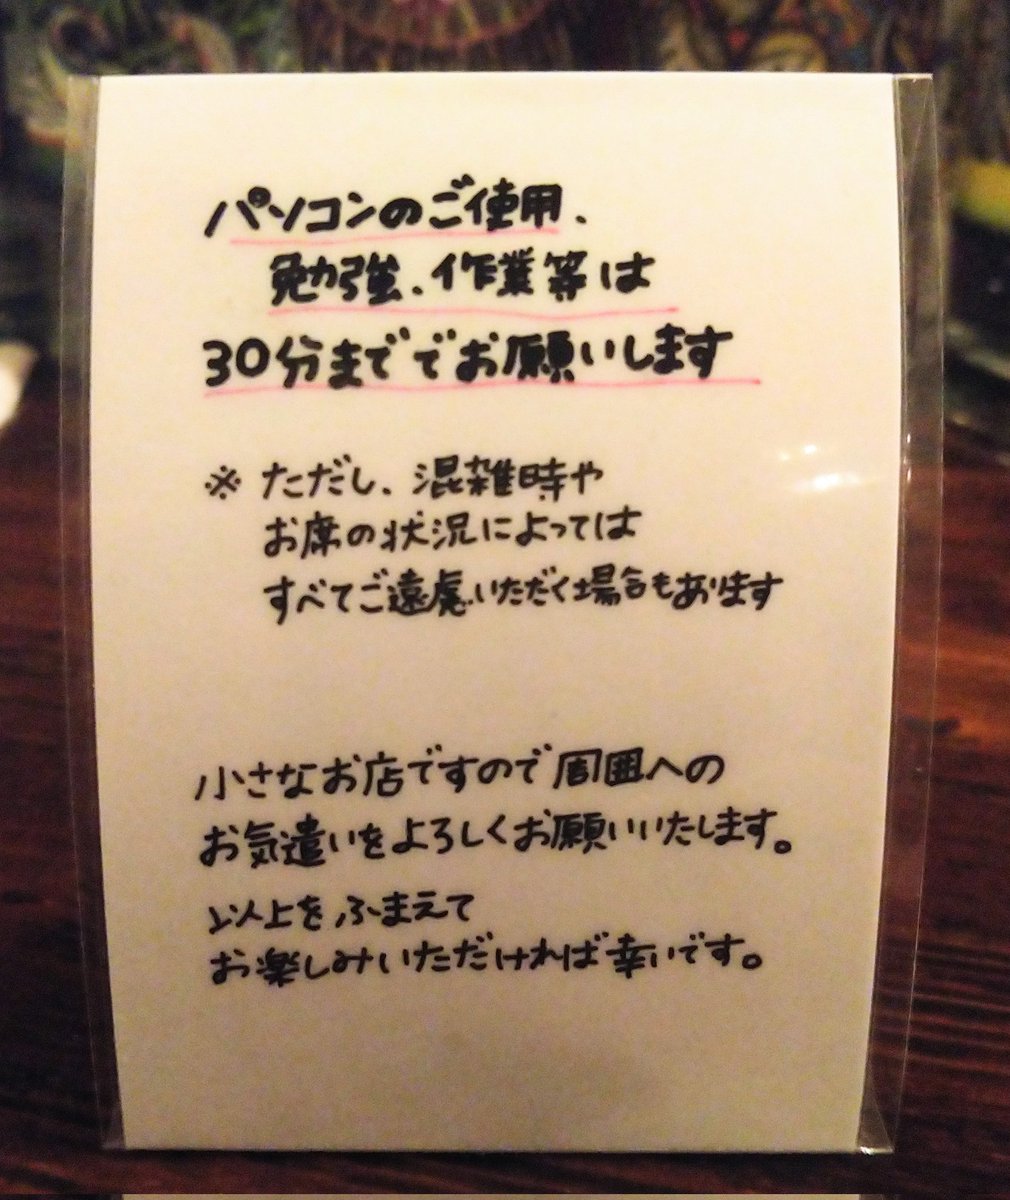 パソコンのご使用、
勉強、作業等は
30分まででお願いします
※ ただし、混雑時や
お席の状況によっては
すべてご遠慮いただく場合もあります
小さなお店ですので周囲への
お気遣いをよろしくお願いいたします。
以上をふまえて
お楽しみいただければ幸いです。